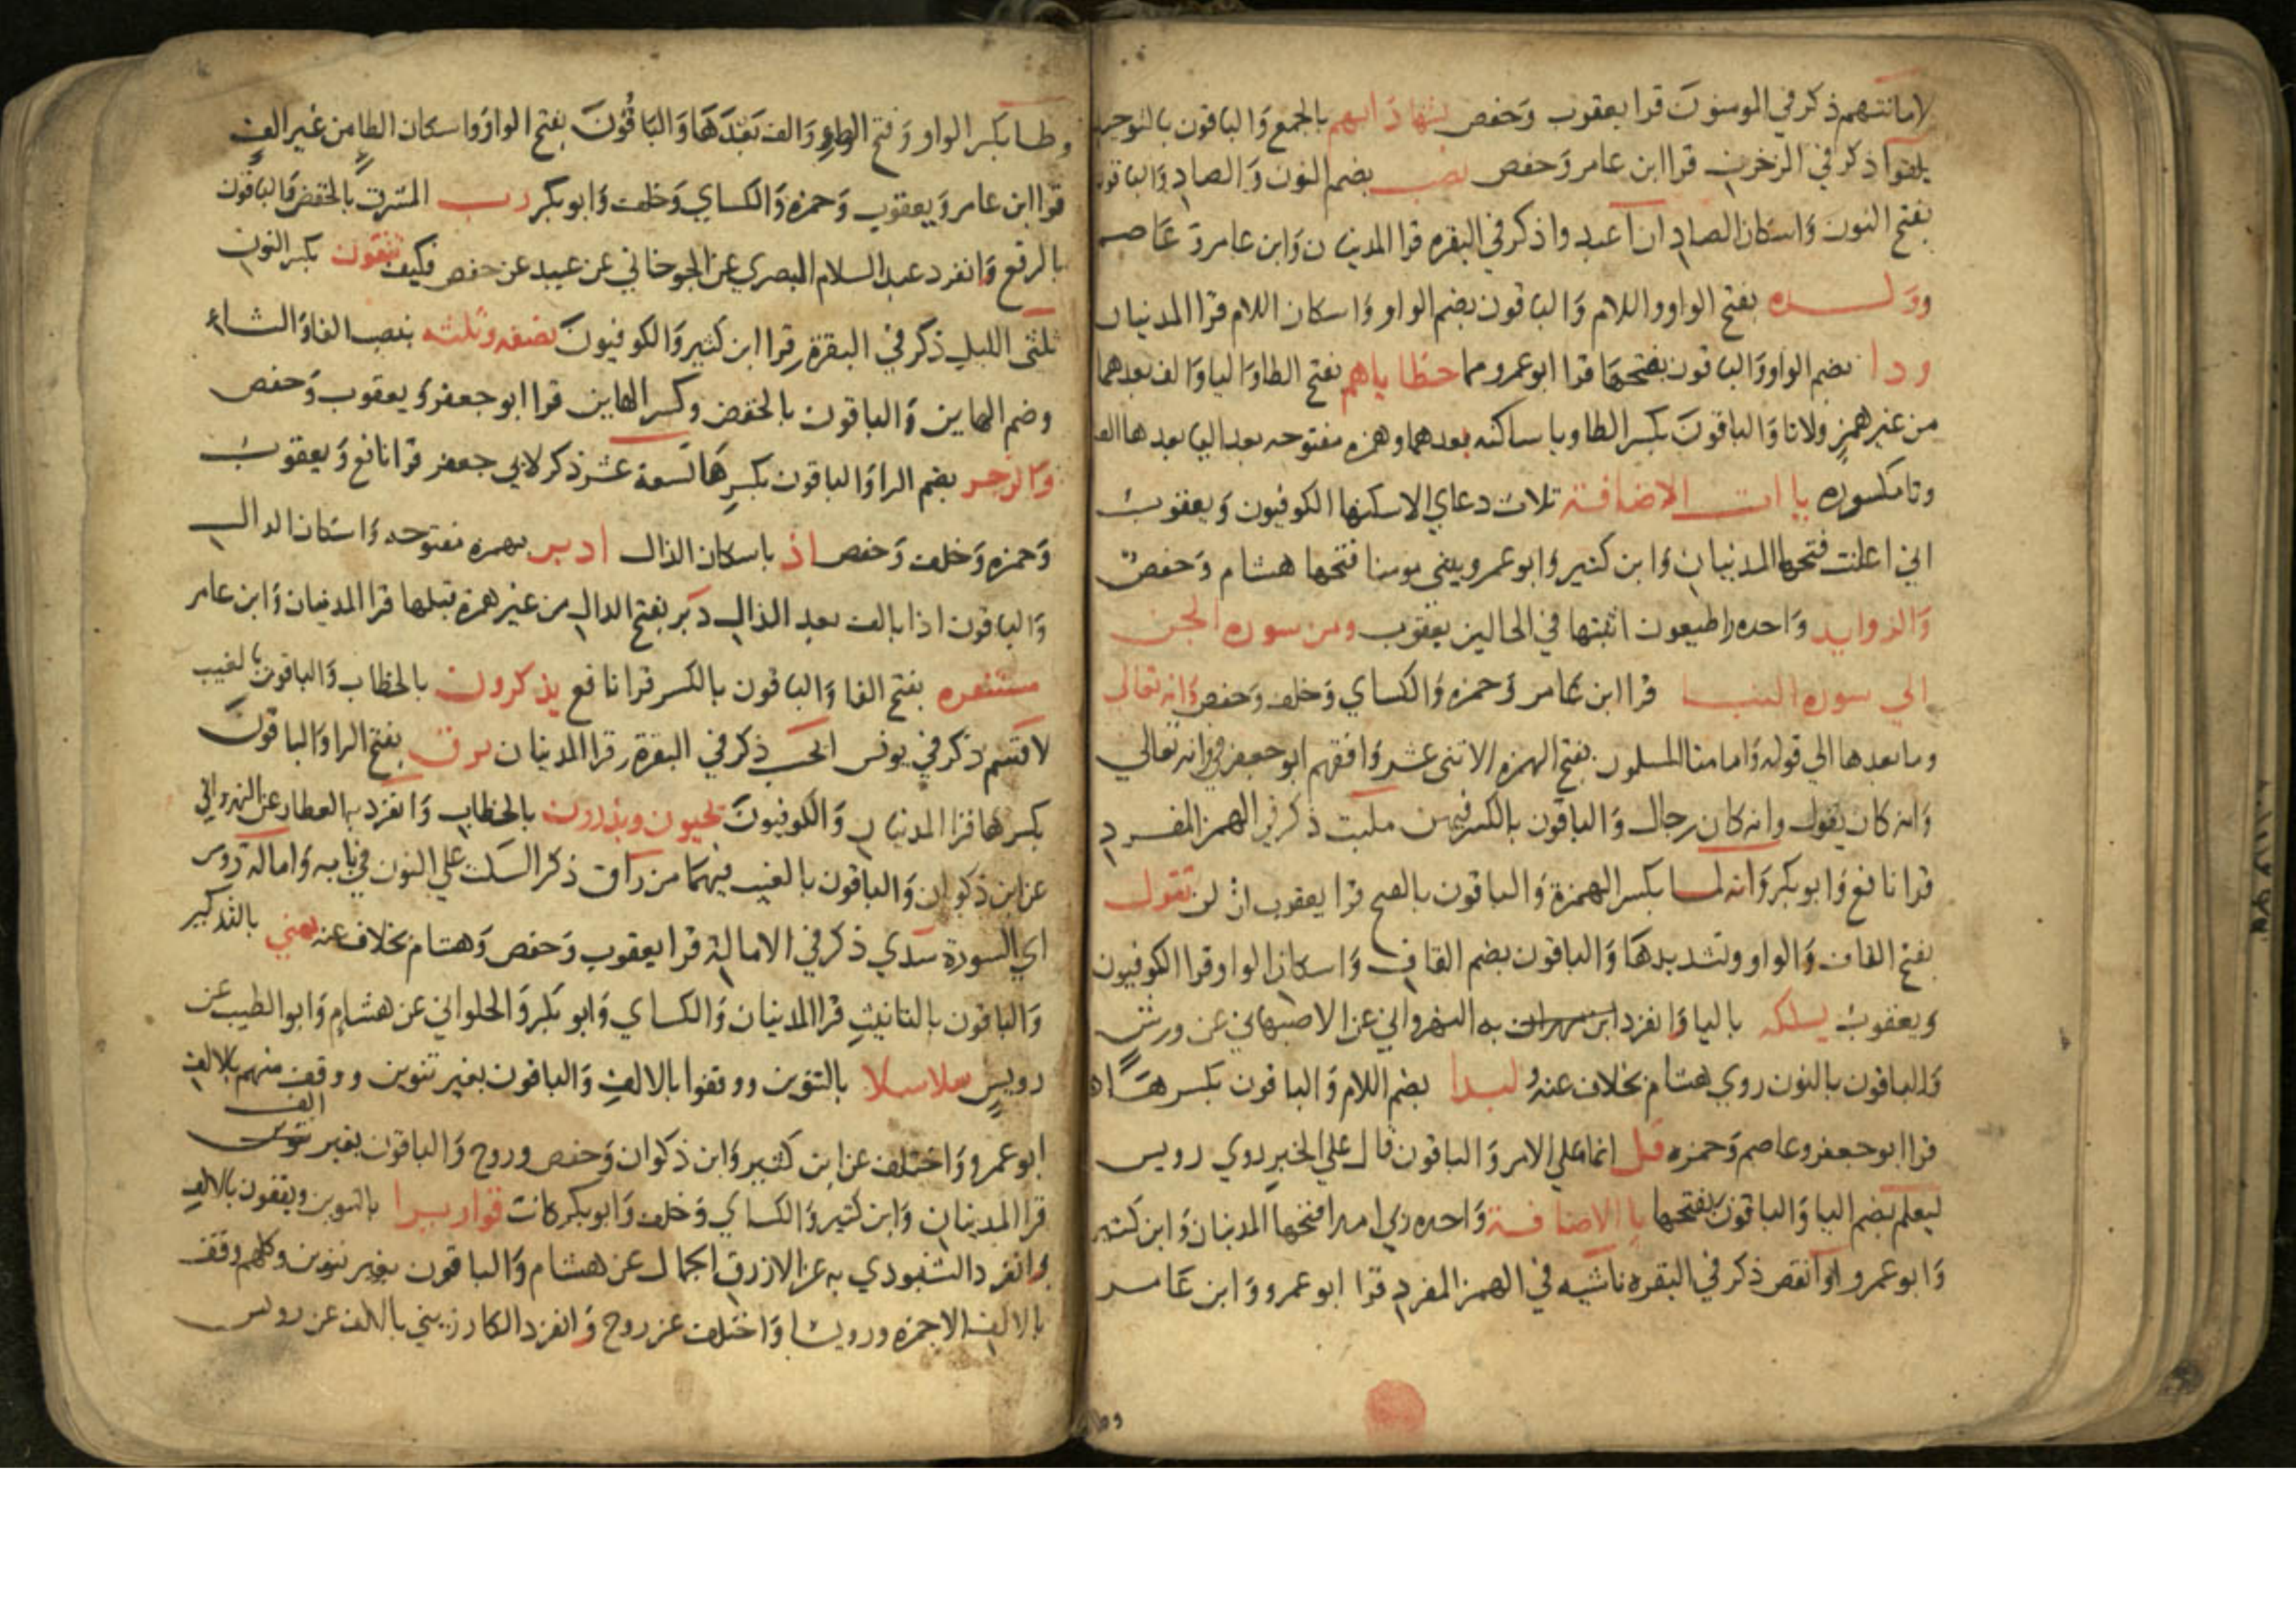 لاماناتهم ذكر في المومنون قرا يعقوب وحفص بشهاداتهم بالجمع والباقون بالتوحيد
يلقوا ذكر في الزخرف قرا ابن عامر وحفص نصب بضم النون والصاد والباقون
بفتح النون واسكان الصاد ان اعبدوا ذكر في البقره قرا المدنيان وابن عامر وعاصم
وولده بفتح الواو واللام والباقون بضم الواو واسكان اللام قرا المدنيان
ودا بضم الواو والباقون بفتحها قرا ابو عمرو مما خطاياهم بفتح الطا واليا والف بعدهما
من غير همز ولا تا والباقون بكسر الطا ويا ساكنه بعدهما وهمزه مفتوحه بعد اليا بعدها الف
وتا مكسوره ياات الاضافة ثلاث دعاي الا سكنها الكوفيون ويعقوب
اني اعلنت فتحها المدنيان وابن كثير وابو عمرو بيتي مومنا فتحها هشام وحفص
والزوايد واحده واطيعون اثبتها في الحالين يعقوب ومن سورة الجن
الي سوره النبا قرا ابن عامر وحمزه والكساي وخلف وحفص وانه تعالى
وما بعدها الي قوله وانا منا المسلمون بفتح الهمزه الاثني عشر وافقهم ابو جعفر في وانه تعالي
وانه كان يقول وانه كان رجال والباقون بالكسر فيهن ملئت ذكر في الهمز المفرد
قرا نافع وابو بكر وانه لما بكسر الهمزة والباقون بالفتح قرا يعقوب ان لن تقول
بفتح القاف والواو وتشديدها والباقون بضم القاف واسكان الواو قرا الكوفيون
ويعقوب يسلكه باليا وانفرد ابن مهران به النهرواني عن الاصبهاني عن ورش
والباقون بالنون روي هشام بخلاف عنه لبدا بضم اللام والباقون بكسرها
قرا ابو جعفر وعاصم وحمزه قل انما علي الامر والباقون قال علي الخبر روي رويس
ليعلم بضم اليا والباقون بفتحها يا الاضافة واحده ربي امدا فتحها المدنيان وابن كثير
وابو عمرو او انقص ذكر في البقره ناشيه في الهمز المفرد قرا ابو عمرو وابن عامر
وطا
وطا بكسر الواو وفتح الطا والف بعدها والباقون بفتح الواو واسكان الطا من غير الف
قرا ابن عامر ويعقوب وحمزه والكساي وخلف وابو بكر رب المشرق بالخفض والباقون
بالرفع وانفرد عبد السلام البصري عن الجوخاني عن عبيد عن حفص فكيف تتقون بكسر النون
ثلثى الليل ذكر في البقرة قرا ابن كثير والكوفيون نصفه وثلثه بنصب الفا والثا
وضم الهاين والباقون بالخفض وكسر الهاين قرا ابو جعفر ويعقوب وحفص
والرجز بضم الرا والباقون بكسرها تسعة عشر ذكر لابي جعفر قرا نافع ويعقوب
وحمزه وخلف وحفص اذ باسكان الذال ادبر بهمزه مفتوحه واسكان الدال
والباقون اذا بالف بعد الذال دبر بفتح الدال من غير همزة قبلها قرا المدنيان وابن عامر
مستنفره بفتح الفا والباقون بالكسر قرا نافع يذكرون بالخطاب والباقون بالغيب
لا قسم ذكر في يونس ايحسب ذكر في البقرة قرا المدنيان برق بفتح الرا والباقون
بكسرها قرا المدنيان والكوفيون تحبون ويذرون بالخطاب وانفرد به العطار عن النهرواني
عن ابن ذكوان والباقون بالغيب فيهما من راق ذكر السكت علي النون في بابه وامالة روس
اي السورة سدي ذكر في الامالة قرا يعقوب وحفص وهشام بخلاف عنه يمني بالتذكير
والباقون بالتانيث قرا المدنيان والكساي وابو بكر والحلواني عن هشام وابو الطيب عن
رويس سلاسلا بالتنوين ووقفوا بالالف والباقون بغير تنوين ووقف منهم بالالف
ابو عمرو واختلف عن ابن كثير وابن ذكوان وحفص وروح والباقون بغير تنوين الف
قرا المدنيان وابن كثير والكساي وخلف وابو بكر كانت قواريرا بالتنوين ويقفون بالالف
وانفرد الشنبوذي به عن الازرق الجمال عن هشام والباقون بغير تنوين وكلهم وقف
بالالف الا حمزه ورويسا واختلف عن روح وانفرد الكارزيني بالالف عن رويس